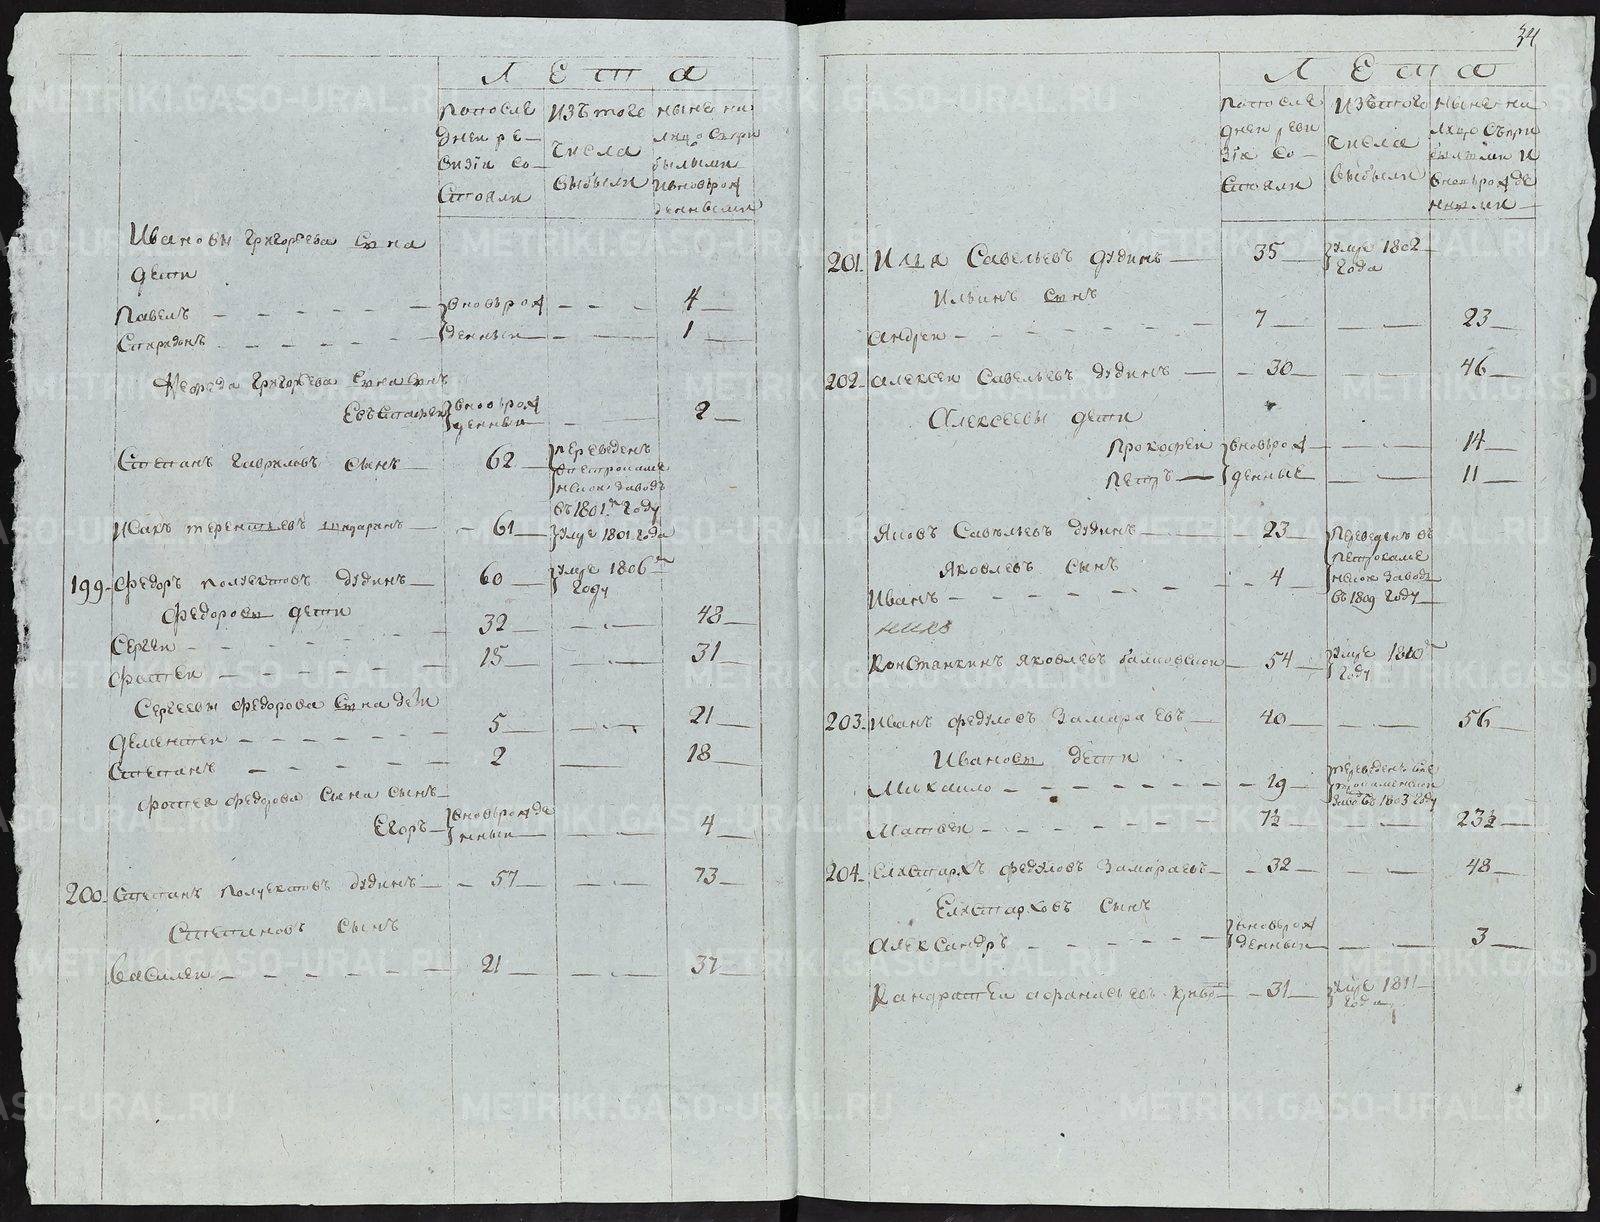 Лета
по после
дней ре-
визiи со-
стояли
изъ того
числа
выбыли
ныне на
лицо съ при
былыми
и вновь рож
денными
Ивановы Григорьева сына
дети
Павелъ
вновь рож
4
Спиридонъ
денныи
1
Нефеда Григорьева сына сынъ
Евъстафеи
вновь рож
денныи
2
Степанъ Гавриловъ сынъ
62
переведен
в петрокаме
нской заводъ
въ 1801м году
Исакъ Терентьевъ
61
умре 1801 года
199
Федоръ Полуектовъ Дудинъ
60
умре 1806
году
Федоровы дети
Сергеи
32
48
Фотеи
15
31
Сергеевы Федорова сына дети
Дементеи
5
21
Степанъ
2
18
Фотея Федорова сына сынъ
Егоръ
вновь рожде
нныи
4
200
Степанъ Полуектовъ Дудинъ
57
73
Степановъ сынъ
Василеи
21
37
34
Лета
по после
дней реви
зiи со-
стояли
изъ того
числа
выбыли
ныне на
лицо съ при
былыми и
вновь рожде
нными
201
Илья Савельевъ Дудинъ
35
умре 1802
года
Ильинъ сынъ
Андреи
7
23
202
Алексеи Савельевъ Дудинъ
30
46
Алексеевы дети
Прокофеи
вновь рож
14
Петръ
денные
11
Яковъ Савельевъ Дудинъ
23
переведенъ въ
петрокаме
нской заводъ
въ 1809 году
Яковлевъ сынъ
Иванъ
4
Констанкинъ Яковлевъ
54
умре 1810
году
203
Иванъ Федуловъ Замараевъ
40
56
Ивановы дети
Михаило
19
переведенъ в пе
трокаменской
заво въ 1803 году
Матвеи
7½
23½
204
Елистархъ Федуловъ Замараевъ
32
48
Елистарховъ сынъ
Александръ
вновь рож
денныи
3
Кандратеи Афанасьевъ
31
умре 1811
года
METRIKI.GASO-URAL.RU